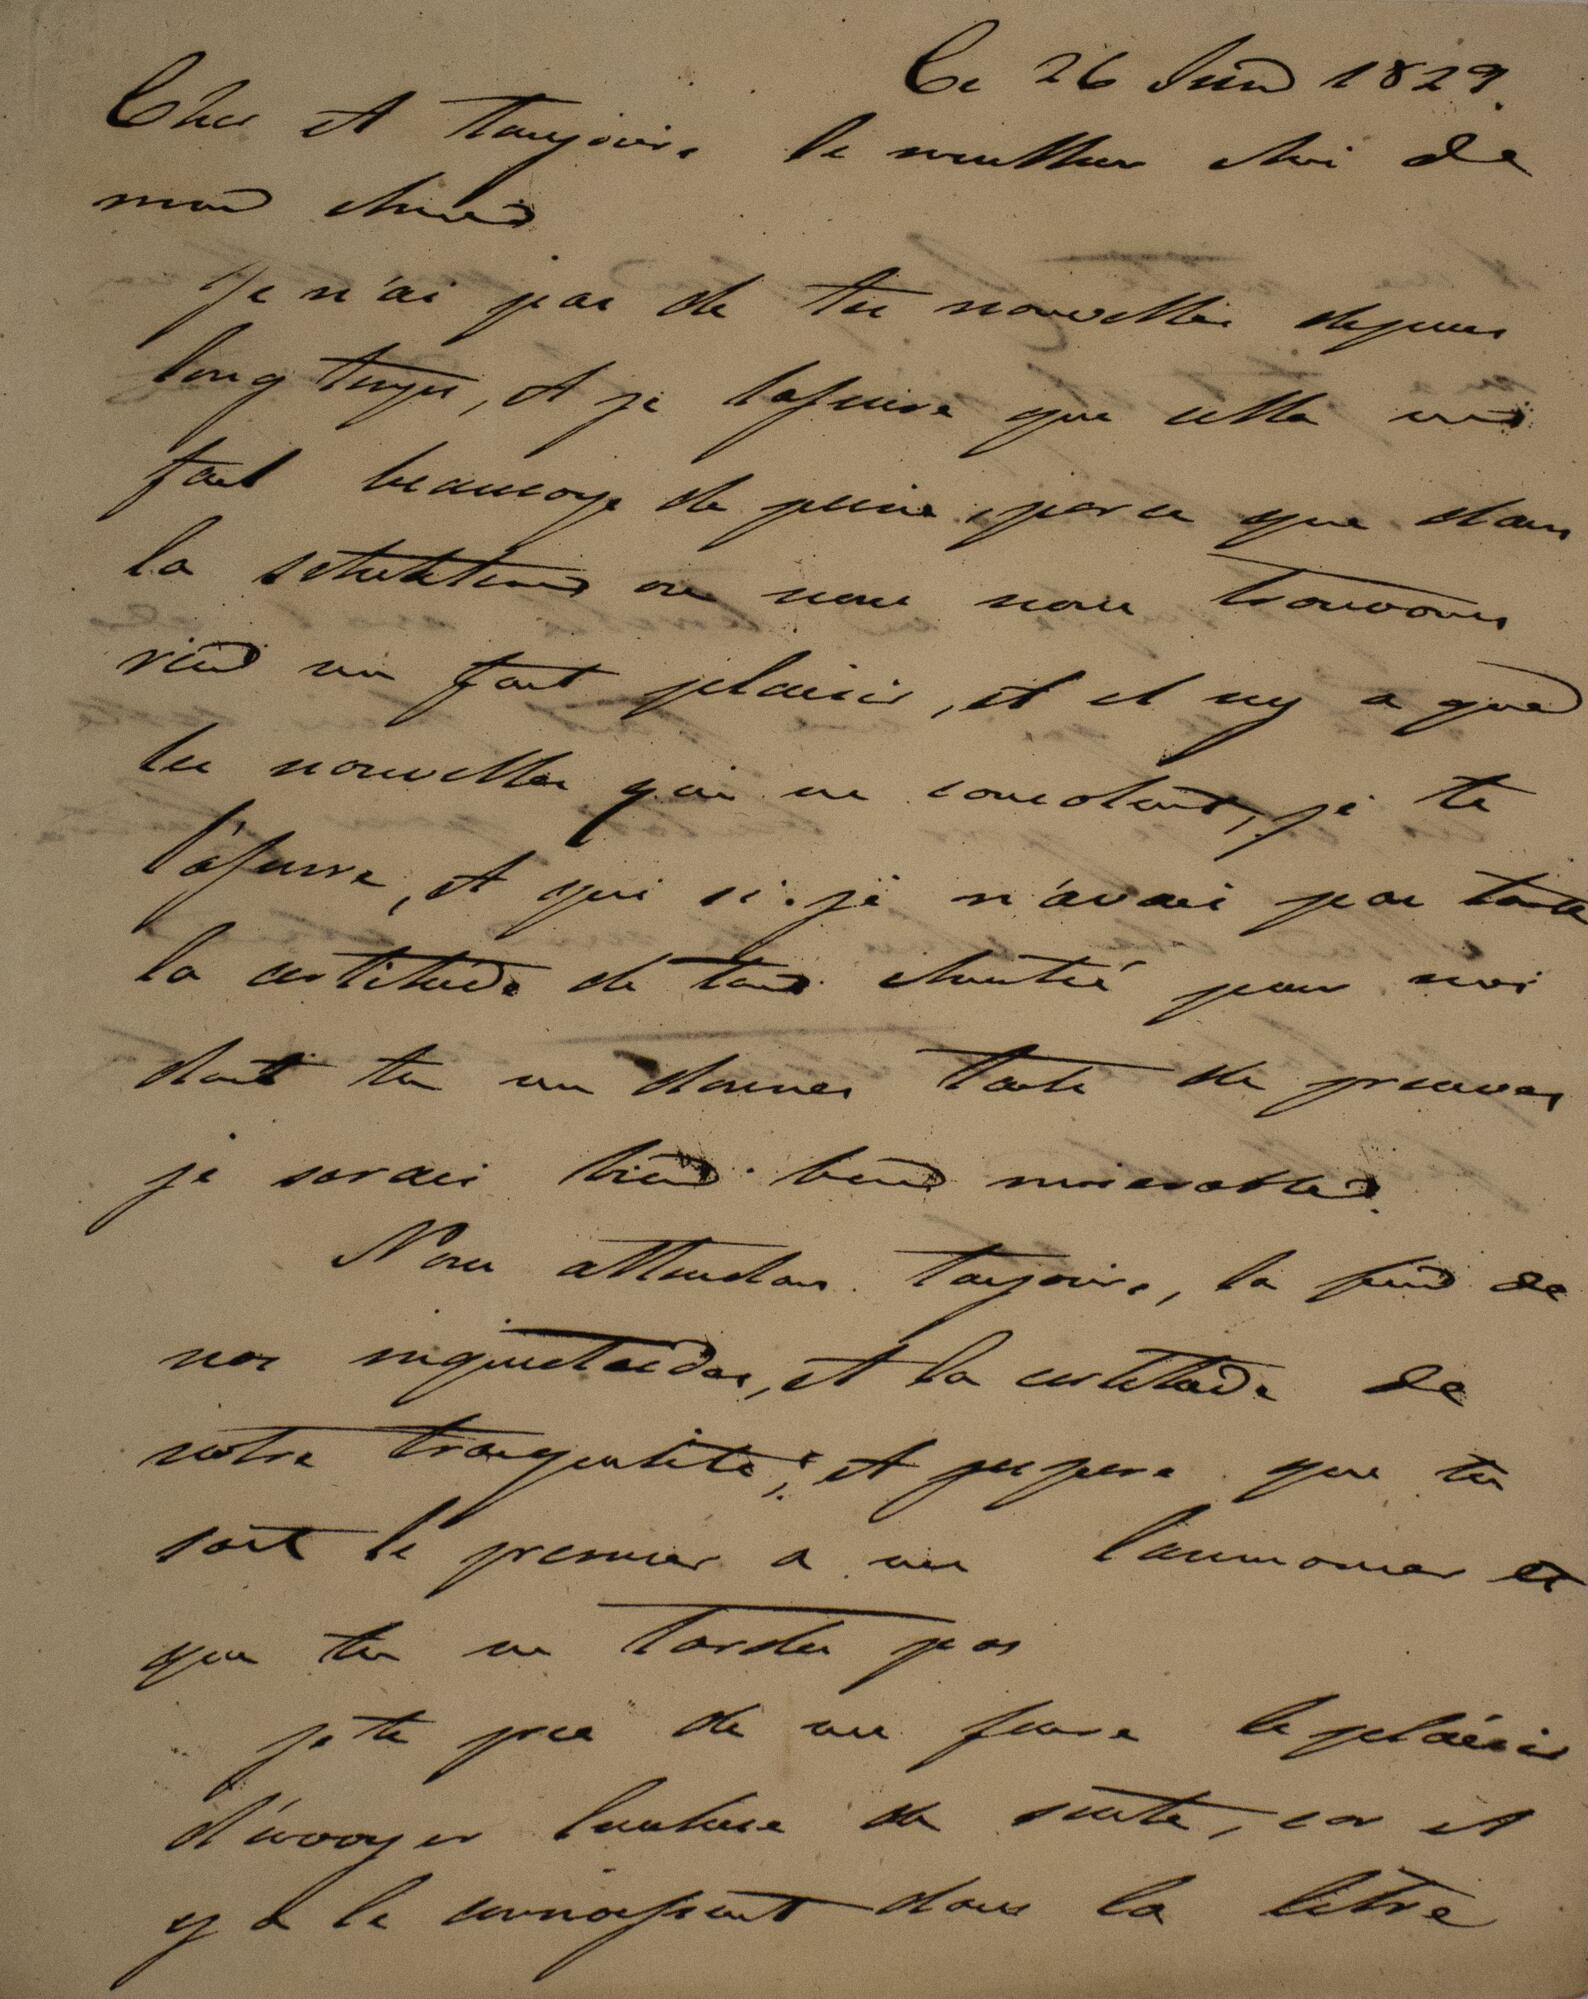 Ce 26 Juin 1829.
Cher et toujours le meilleur Ami de
mon
Je n'ai pas de tes nouvelles depuis
long temps, et je t'assure que cella me
fait beaucoup de peine, parce que dans
la où nous nous trouvons
rien me fait plaisir, et il ny a que
les nouvelles qui me consolent, je te
l'assure, et qui si je n'avais pas toute
la certitude de ton Amitié pour moi
dont tu me donnes tante de preuves
je serais bien bien miserable.
Nous attendons toujours, la fin de
nos inquietudes, et la certitude de
notre tranquilité; et que tu
soit le premier a me l'announcer et
que tu ne tardes pas
je te prie de me faire le plaisir
d'envoyer de suite, car il
y a le dans la letre